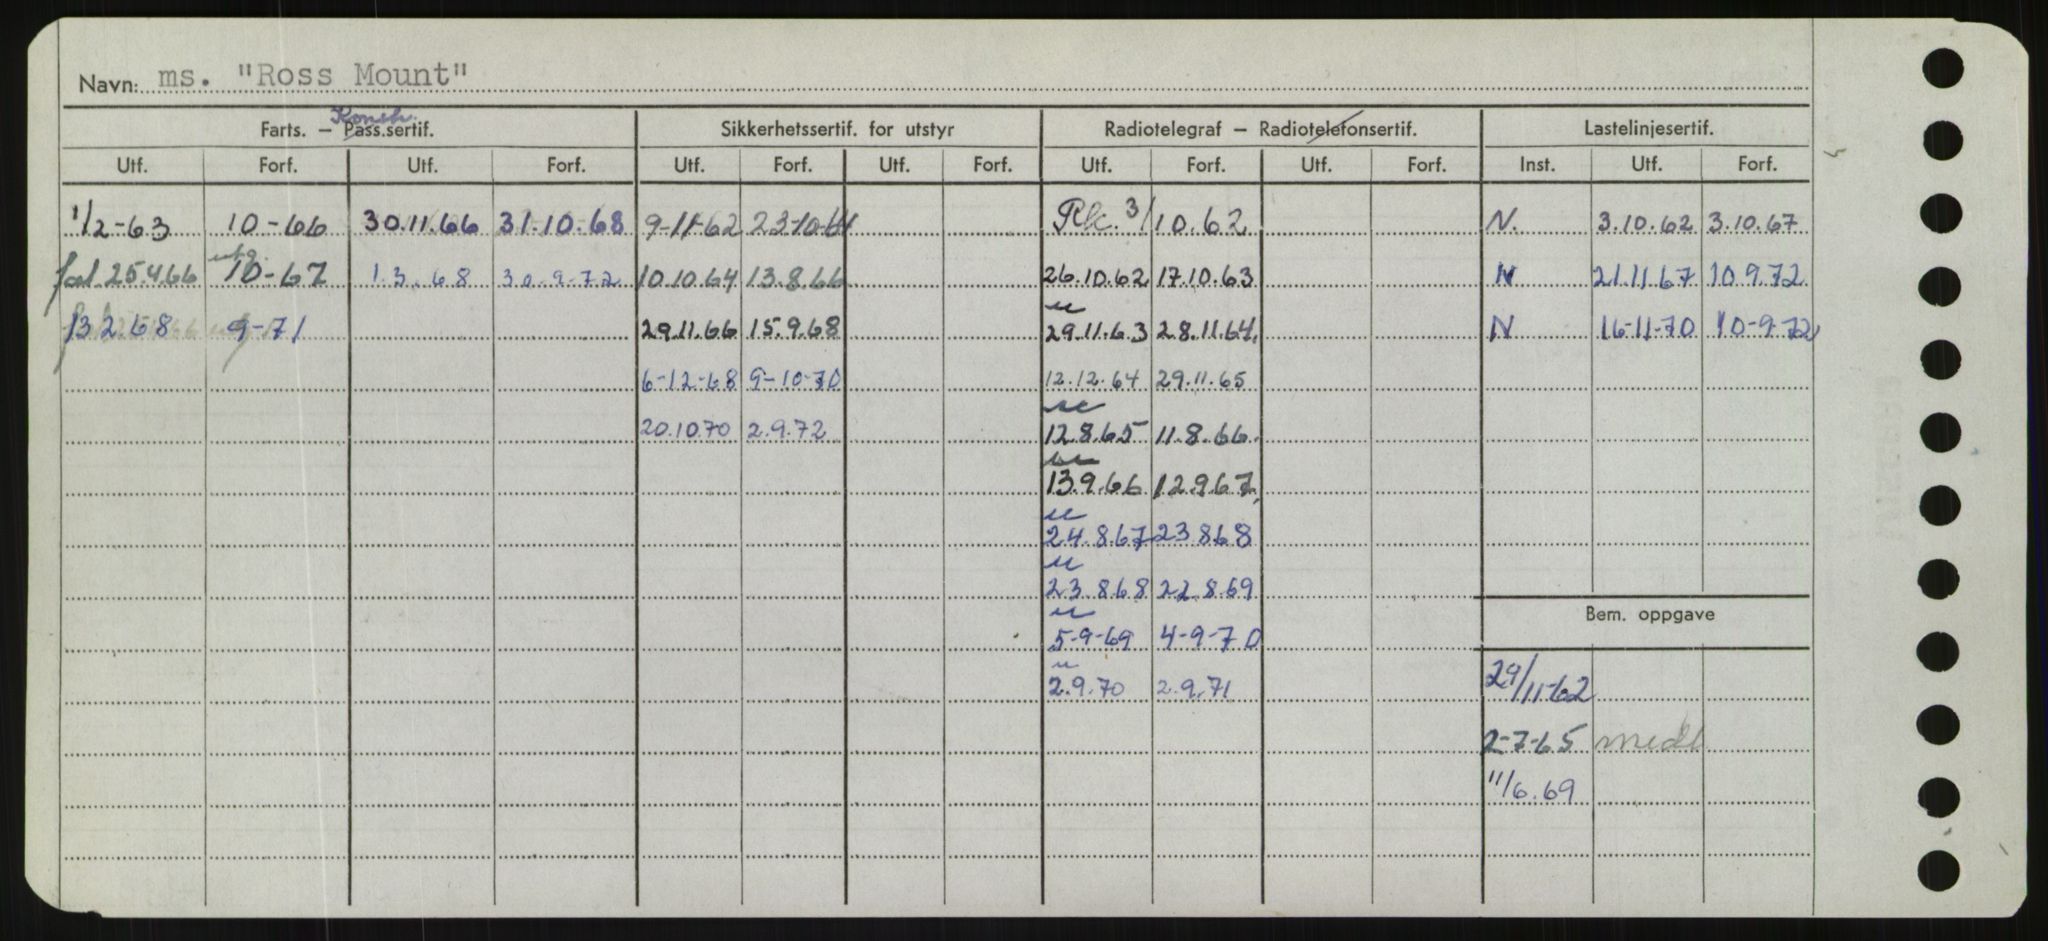 Navn: ms. "Ross Mount"
Konstr.
Farts. – Pass.sertif. Sikkerhetssertif. for utstyr Radiotelegraf – Radiotelefonsertif. Lastelinjesertif.
Utf. Forf. Utf. Forf. Utf. Forf. Utf. Forf. Utf. Forf. Utf. Forf. Inst. Utf. Forf.
1/2-63 10-66 30.11.66 31-10-68 9-11-62 23-10-64 Rk. 3/10.62 N. 3.10.62 3.10.67
25.4.66 utg. 10-67 1.3.68 30.9.72 10.10.64 13.8.66 26.10.62 17.10.63 N 21.11.67 10.9.72
13.2.68 9-71 29.11.66 15.9.68 29.11.63 28.11.64. N 16-11-70 10-9-72
6-12-68 9-10-70 12.12.64 29.11.65
20.10.70 2.9.72 12.8.65 11.8.66.
13.9.66 12.9.67.
24.8.67 23.8.68
23.8.68 22.8.69
Bem. oppgave
5-9-69 4-9-70
2.9.70 2.9.71 29/11-62
2-7-65 medl
11/6.69